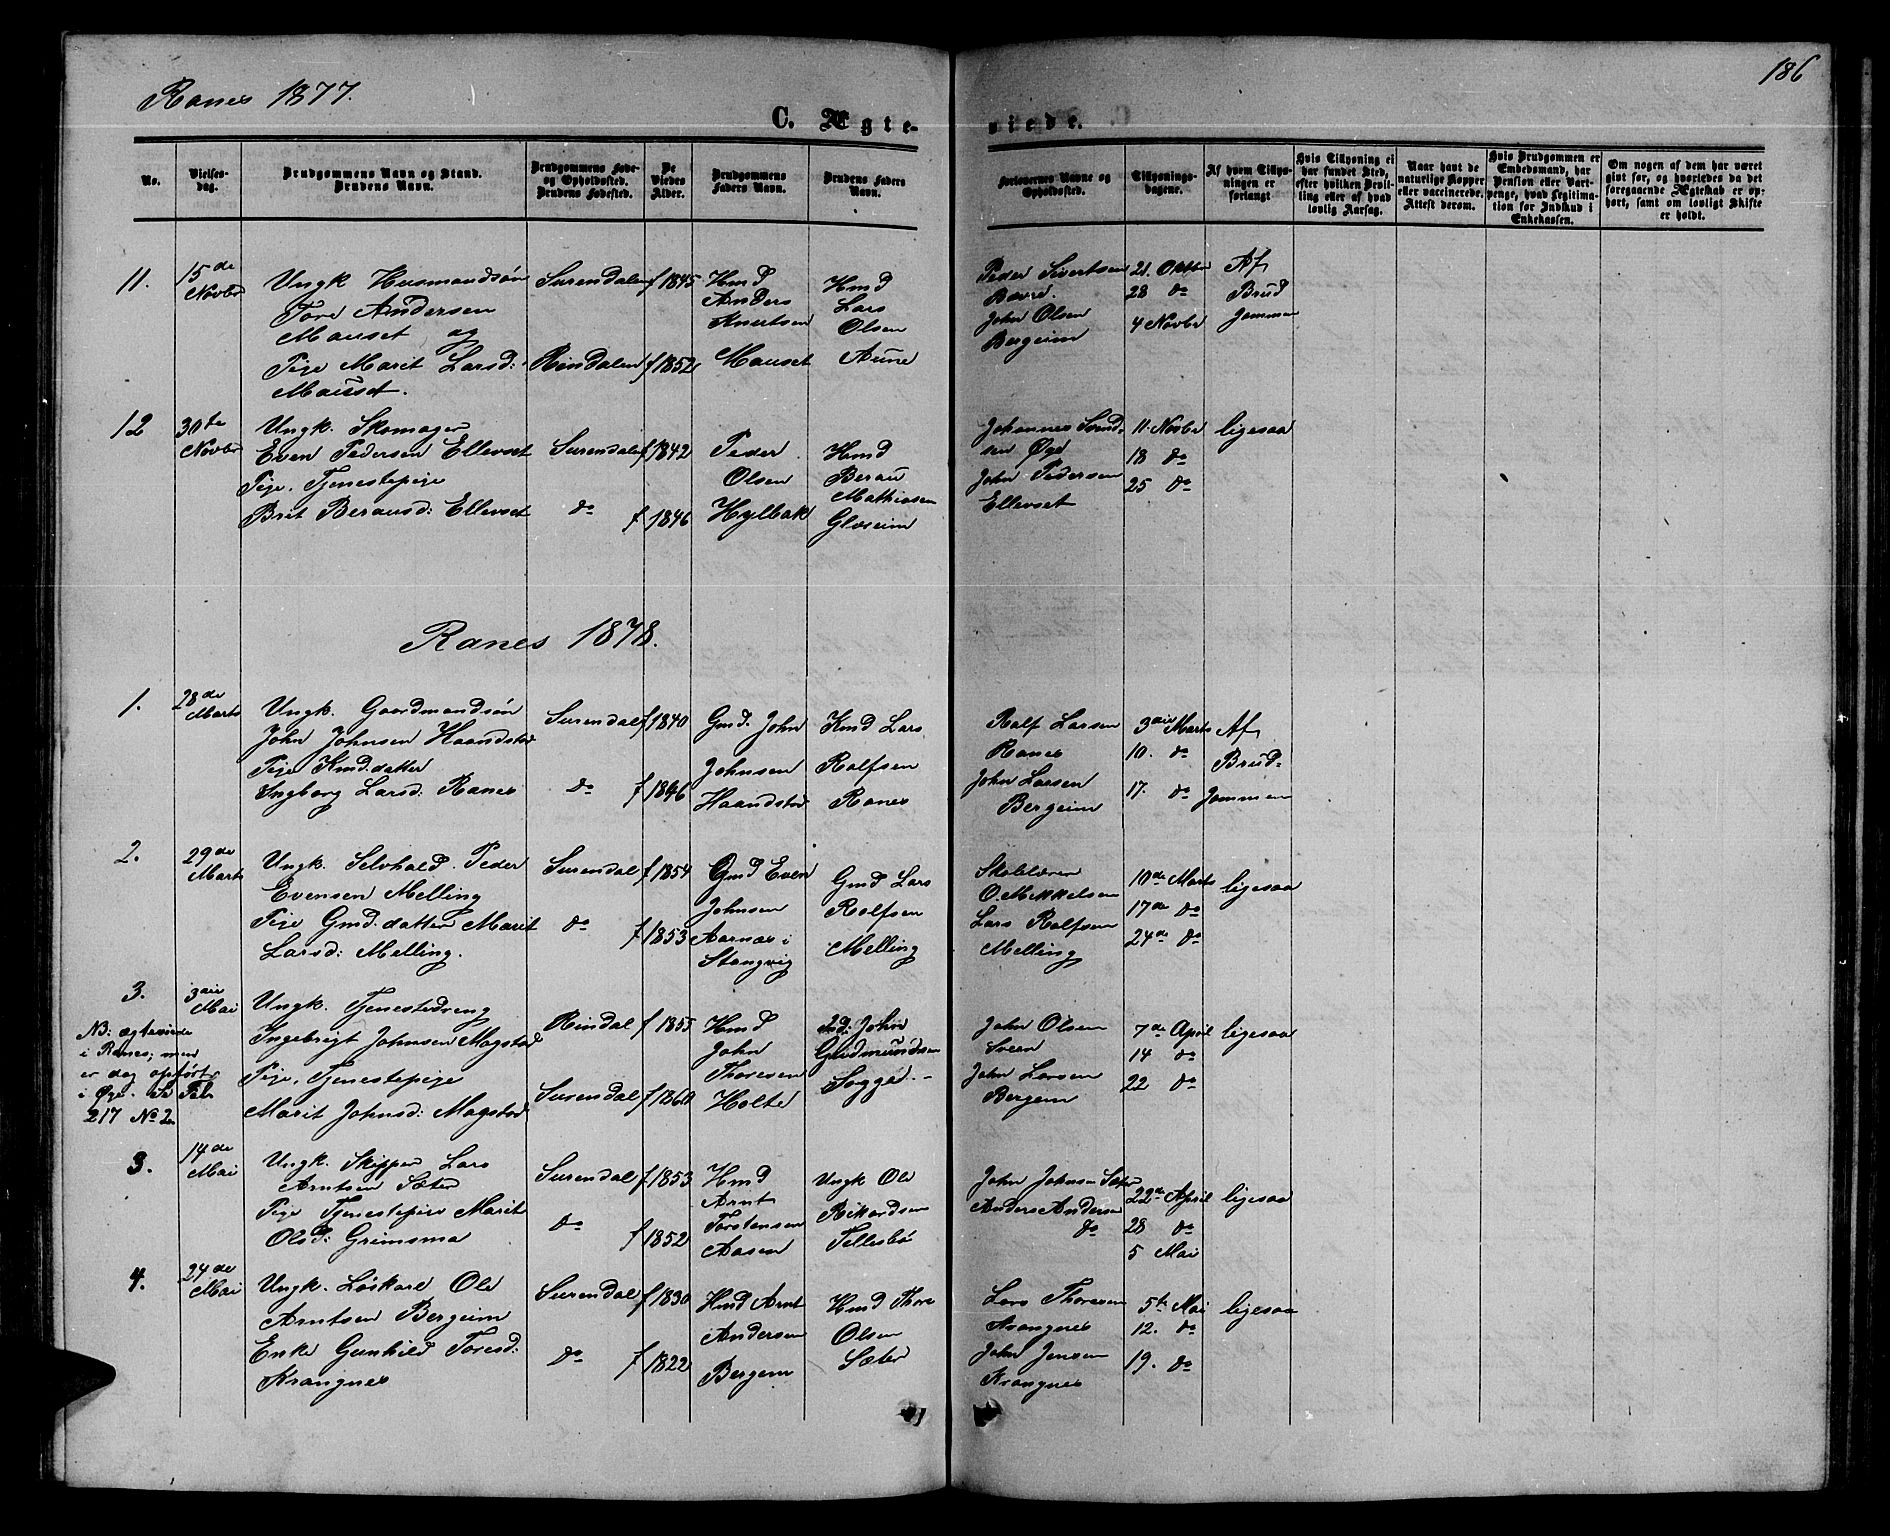 Ranes 1877.
186
C. Ægte-
viede.
No.
Vielses-
dag.
Brudgommens Navn og Stand.
Brudens Navn.
Brudgommens Føde-
og Opholdssted.
Brudens Fødested.
De
Viedes
Alder.
Brudgommens
Faders Navn.
Brudens Faders
Navn.
Forlovernes Navne og
Opholdssted.
Tillysnings-
dagene.
Af hvem Tillys-
ningen er
forlangt
Hvis Tillysning ei
har fundet Sted,
efter hvilken Bevil-
ling eller af hvad
lovlig Aarsag.
Naar havt de
naturlige Kopper
eller vaccinerede.
Attest derom.
Hvis Brudgommen er
Embedsmand, har
Pension eller Vart-
penge, hvad Legitima-
tion for Indskud i
Enkekassen.
Om nogen af dem har været
gift før, og hvorledes da det
foregaaende Ægteskab er op-
hørt, samt om lovligt Skifte
er holdt.
11.
15de
Novbr
Ungk. Husmandsøn
Tore Andersen
Mauset og
Pige Marit Larsd:
Mauset.
Surendalen
Rindalen
f 1845
f 1852
Hmd
Anders
Knutsen
Mauset
Hmd
Lars
Olsen
Aune
Peder Sivertsen
Bævre.
John Olsen
Bergeim
21. Oktbr
28 do
4 Novbr
Af
Brud
Gommen
12
30te
Novbr
Ungk. Skomager
Even Pedersen Ellevset
Pige, Tjenestepige
Brit Berausd: Ellevset
Surendalen
do
f 1842
f 1846
Peder
Olsen
Hylbak
Hmd
Berau
Mathiasen
Glæseim
Johannes Svend-
sen Øye
John Pedersen
Ellevset
11. Novbr
18 do
25 do
ligesaa
Ranes 1878.
1.
28de
Marts
Ungk. Gaardmandsøn
John Johnsen Haandstad
Pige Kmd.datter
Ingborg Larsd: Ranes
Surendal
do
f 1840
f 1846
Gmd. John
Johnsen
Haandstad
Kmd Lars
Rolfsen
Ranes
Rolf Larsen
Ranes
John Larsen
Bergeim
3die Marts
10. do
17. do
Af
Brud-
Gommen
2.
29de
Marts
Ungk. Selvhold. Peder
Evensen Melling
Pige Gmd.datter Marit
Larsd: Melling.
Surendal
do
f 1854
f 1853
Gmd Even
Johnsen
Aarnæs i
Stangvig
Gmd Lars
Rolfsen
Melling
Skolelærer
O. Mikkelsen
Lars Rolfsen
Melling
10de Marts
17de do
24de do
ligesaa
3.
3die
Mai
NB: ægteviede
i Ranes; men
er dog opført
i Øye. Se Fol.
217 No 2.
Ungk. Tjenestedreng
Ingebrigt Johnsen Mogstad
Pige, Tjenestepige
Marit Johnsd: Mogstad
Rindal
Surendal
f 1855
f 1860
Hmd
John
Thoresen
Holte
John
Gudmundsen
Sogge.
John Olsen
Sveen
John Larsen
Bergem
7de April
14 do
22 do
ligesaa
3.
14de
Mai
Ungk. Skipper Lars
Arntsen Sæter
Pige Tjenestepige Marit
Olsd: Grimsmo
Surendal
do
f 1853
f 1852
Hmd
Arnt
Torstensen
Aasen
Ungk Ole
Rikardsen
Tellesbø
John Johnsen Sæter
Anders Andersen
do
22de April
28 do
5 Mai
ligesaa
4.
24de
Mai
Ungk. Løskarl Ole
Arntsen Bergeim
Enke Gunhild Toresd:
Krangnes
Surendal
do
f 1830
f 1822
Hmd Arnt
Andersen
Bergem
Hmd Thore
Olsen
Sæter
Lars Thoresen
Krangnes
John Jensen
Krangnes
5te Mai
12. do
19. do
ligesaa